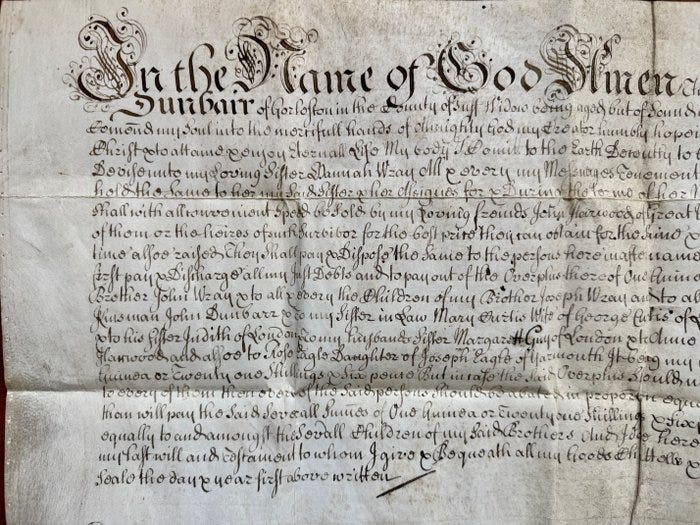 In the Name of God Amen
Dunbarr of Gorleston in the County of Suff Widow being aged but of Sound
Comend my Soul into the mercifull hands of Almighty God my Creator humbly hopei
Christ x to attaine x enjoy Eternall Life My body I Comit to the Earth Decently to
Devise unto my Loving Sister Hannah Wray All x every my Messuages Tenement
hold the Same to her my Said Sister x her Assignes for x During the terme of her
Shall with all convenient Speed be Sold by my Loving friends John Harwood of Great
of them or the heires of such Survivor for the best price they can obtain for the Same x
time alsoe raised They Shall pay x Dispose the Same to the persons hereinafter name
first pay x Discharge all my Just Debts and to pay out of the Overplus thereof One Guinea
Brother John Wray x to all x every the Children of my Brother Joseph Wray and to
Kinsman John Dunbarr x to my Sister in Law Mary Curtis Wife of George Curtis of
x to his Sister Judith of London x to my husbands Sister Margarett Guy of London x to Anne
Harwood and alsoe to Rose Eagle Daughter of Joseph Eagle of Yarmouth It being my
Guinea or Twenty one Shillings x Six pence But in case the Said Overplus Should
to every of them then every of the Said persons Should be abated in proporcon equa
than will pay the Said Severall Summes of One Guinea or Twenty one Shillings x Six
equally to and amongst the Severall Children of my Said Brothers And I doe here
my last will and testament to whom I give x Bequeath all my Goods Chattells x
Seale the day x year first above written